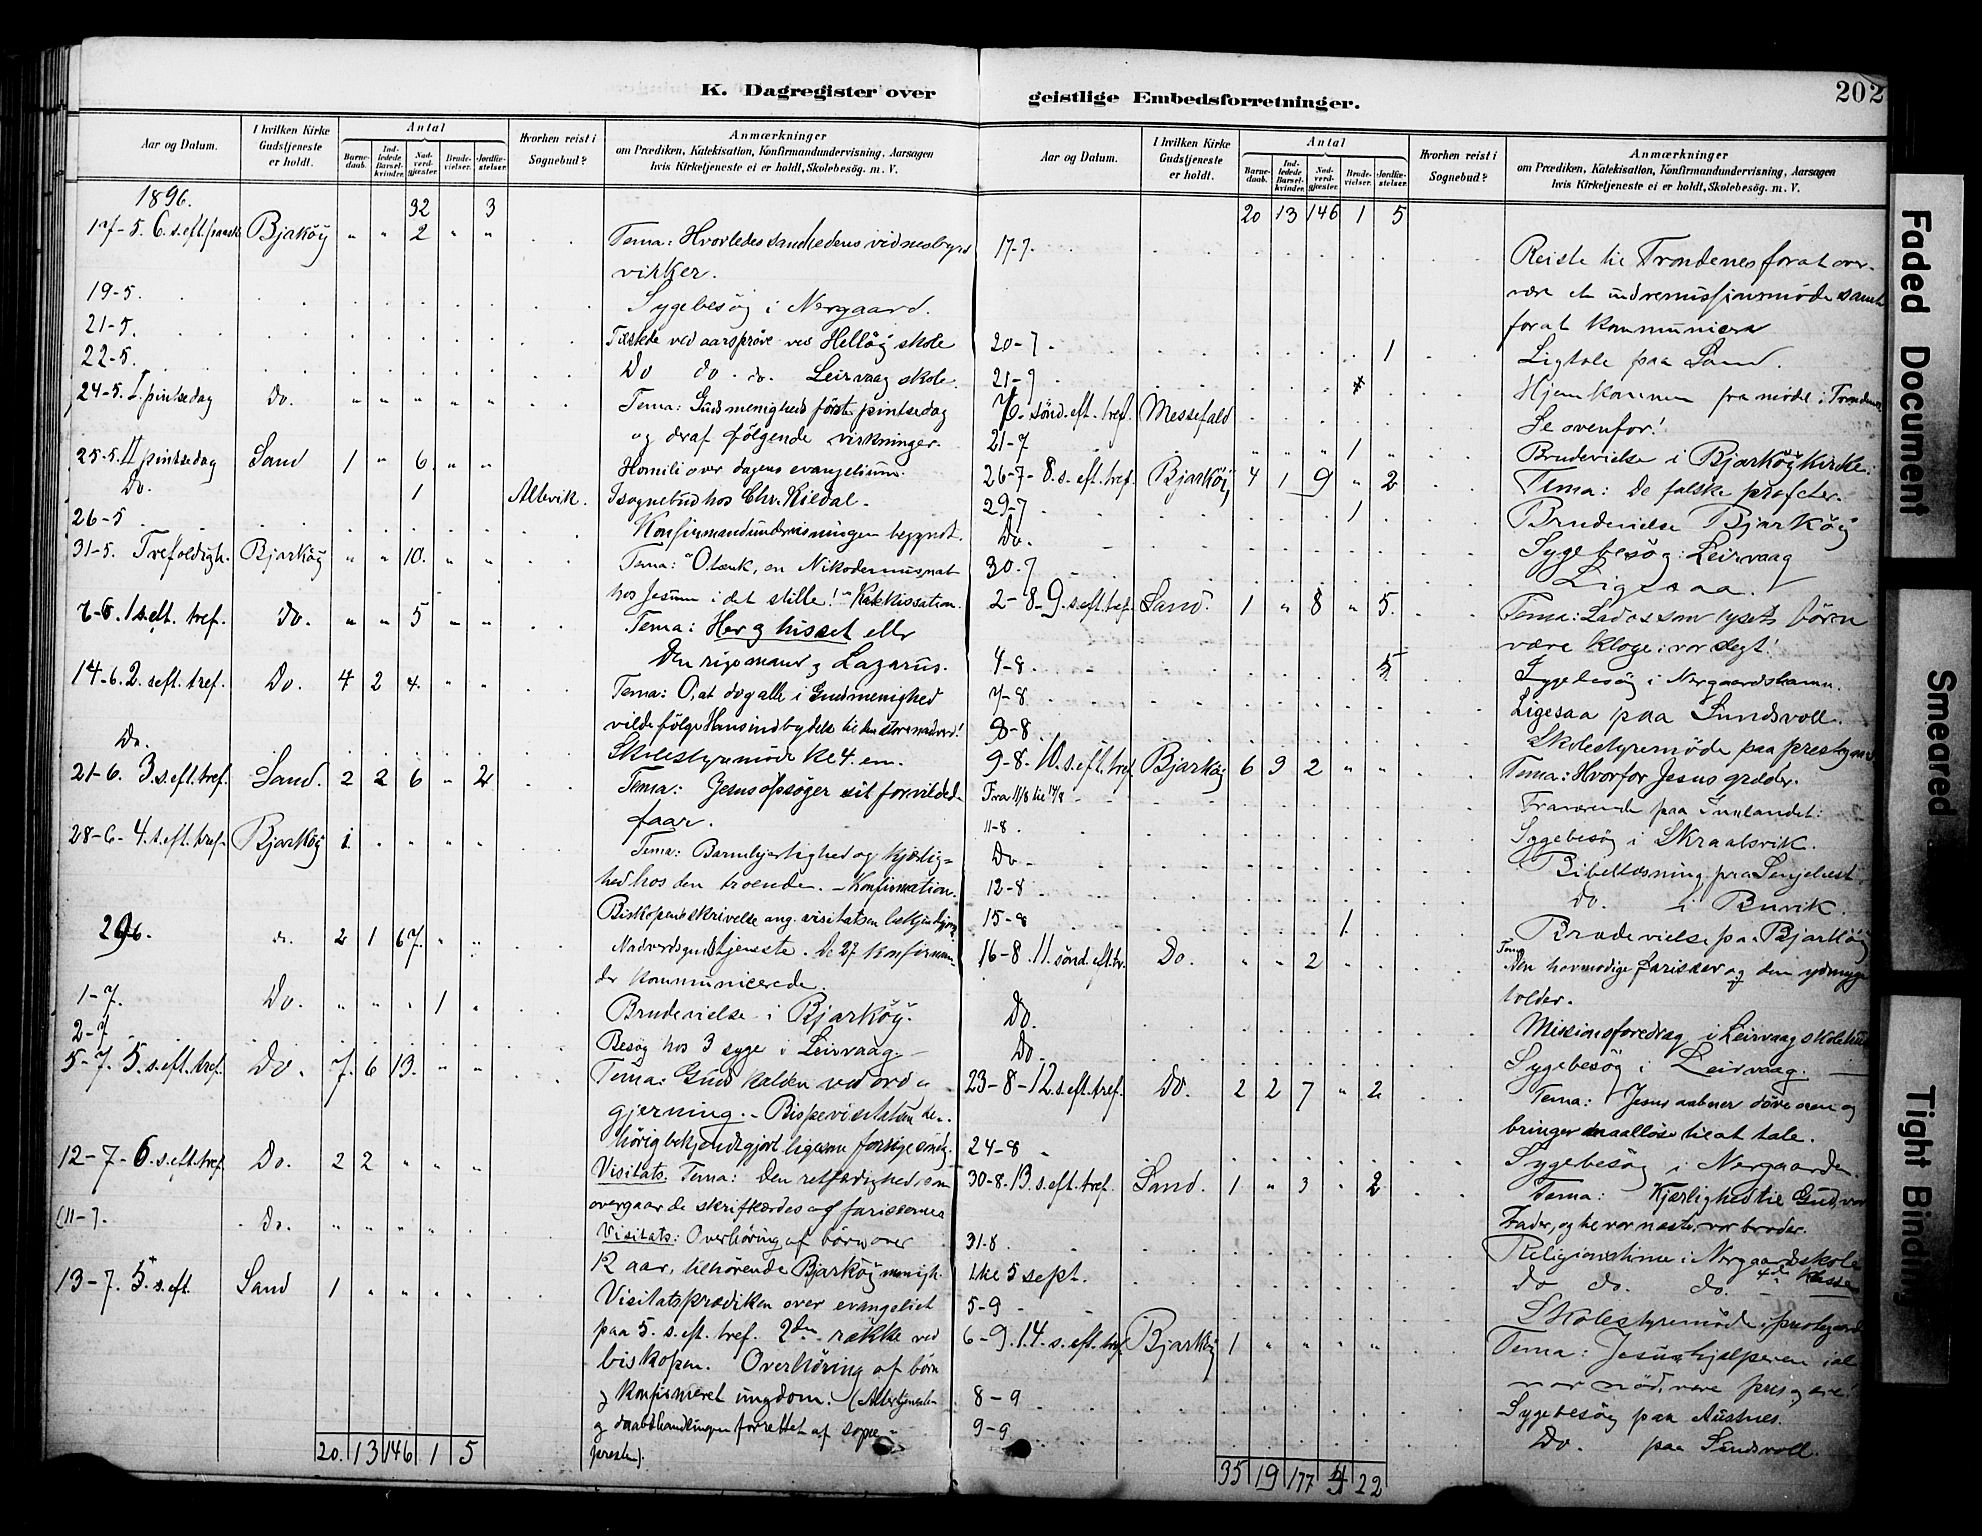 K. Dagregister over geistlige Embedsforretninger.
202
Aar og Datum.
I hvilken Kirke Gudstjeneste er holdt.
Antal
Barne-daab.
Ind-ledede Barsel-kvinder.
Nad-verd-gjester.
Brude-vielser.
Jordfæ-stelser.
Hvorhen reist i Sognebud?
Anmærkninger
om Prædiken, Katekisation, Konfirmandundervisning, Aarsagen
hvis Kirketjeneste ei er holdt, Skolebesøg. m. V.
1896.
32 3
17-5. 6. s. eft. paaske Bjarkøy " " 2 " " Tema: Hvorledes sandhedens vidnesbyrd
virker.
19-5. Sygebesøg i Nergaard.
21-5. Tilstede ved aarsprøve ved Helløy skole
22-5. Do do. do. Leirvaag skole.
24-5. I pintsedag Do. " " " " " Tema: Guds menighed første pintsedag
og deraf følgende virkninger.
25-5. II pintsedag Sand 1 " 6 " " Homili over dagens evangelium.
Do. 1 Altevik. I sognebud hos Chr. Kildal.
26-5 Konfirmandundervisningen begyndt.
31-5. Trefoldigh. Bjarkøy " " 10. " " Tema: "O tænk, en Nikodemusnat
hos Jesum i det stille!" Katekisation.
7-6. 1 s. eft. tref. Do. " " 5 " " Tema: Her og hisset eller
Den rige mand og Lazarus.
14-6. 2. s eft. tref. Do. 4 2 4. " " Tema: O, at dog alle i Guds menighed
vilde følge Hans indbydelse til den store nadverd!
Do. Skolestyremøde kl 4 em.
21-6. 3. s. eft. tref. Sand. 2 2 6 " 2 Tema: Jesus opsøger sit forvildede
faar.
28-6. 4. s. eft. tref. Bjarkøy 1. " " " " Tema: Barmhjertighed og kjærlig-
hed hos den troende. - Konfirmation.
Biskopens skrivelse ang. visitatsen bekjendtgjort.
29-6. do. 2 1 67. " " Nadverdgudstjeneste. De 27 konfirman-
der kommunicerede.
1-7. Do. " " " 1 " Brudevielse i Bjarkøy.
2-7 Besøg hos 3 syge i Leirvaag.
5-7. 5. s. eft. tref. Do. 7. 6 13. " " Tema: Guds kalden ved ord og
gjerning. - Bispevisitatsen be-
hørig bekjendtgjort ligesom forrige søndag.
12-7-6. s. eft. tref. Do. 2 2 " " " Visitats. Tema: Den retfærdighed, som
overgaar de skriftlærdes og farisæernes
(11-7. Do. " " " " " Visitats: Overhøring af børn over
12 aar, tilhørende Bjarkøy menigh.
13-7. 5. s. eft. Sand 1 " " " " Visitatsprædiken over evangeliet
paa 5. s. eft. tref. 2den række ved
biskopen. Overhøring af børn
og konfirmeret ungdom. (Altertjenesten
og daabshandlingen forrettet af sogne-
presten).
20. 13 146 1 5
Aar og Datum.
I hvilken Kirke Gudstjeneste er holdt.
Antal
Barne-daab.
Ind-ledede Barsel-kvinder.
Nad-verd-gjester.
Brude-vielser.
Jordfæ-stelser.
Hvorhen reist i Sognebud?
Anmærkninger
om Prædiken, Katekisation, Konfirmandundervisning, Aarsagen
hvis Kirketjeneste ei er holdt, Skolebesøg. m. V.
20 13 146 1 5
17-7. Reiste til Trondenes forat over-
være et indremissionsmøde samt
forat kommunicere
20-7 1 Ligtale paa Sand.
21-7 Hjemkommen fra mødet i Trondenes
7. sønd. eft. tref. Messefald Se ovenfor!
21-7 " " " 1 " Brudevielse i Bjarkøy kirke.
26-7-8. s. eft. tref. Bjarkøy 4 1 9 " 2 Tema: De falske profeter.
29-7 1 Brudevielse Bjarkøy
Do. Sygebesøg i Leirvaag
30-7 Ligesaa.
2-8-9. s eft. tref. Sand. 1 " 8 " 5. Tema: Lad os som lysets børn
være kloge i vor slegt!
4-8 5 Sygebesøg i Nergaardshamn.
7-8 Ligesaa paa Sundsvoll.
8-8 Skolestyremøde paa prestegaard
9-8-10. s. eft. tref Bjarkøy 6 3 2 " " Tema: Hvorfor Jesus græder.
Fra 11/8 til 14/8 Fraværende paa Innlandet:
11-8 Sygebesøg i Skraalsvik.
Do Bibellæsning paa Senjehest.
12-8 do. i Buvik.
15-8 1. Brudevielse paa Bjarkøy
16-8. 11. sønd. eft. tr. Do. " " 2 " Tema Den hovmodige farisæer og den ydmyge
tolder.
Do. Missionsforedrag i Leirvaag skolehus
Do Sygebesøg i Leirvaag.
23-8-12. s. eft. tref. Do. 2 2 7 " 2 Tema: Jesus aabner døve øren og
bringer maalløse til at tale.
24-8 Sygebesøg i Nergaarden
30-8. 13. s. eft. tref. Sand. 1 " 3 " 2 Tema: Kjærlighed til Gud, vor
Fader, og til vor næste, vor broder.
31-8 Religionstime i Nergaard skole
1 til 5 sept. do do. do. 4de klasse
5-9 Skolestyremøde i prestegaard
6-9. 14. s. eft. tref. Bjarkøy 1 " " " " Tema: Jesus hjælperen i al
vor nød, være pris og ære!
8-9 Sygebesøg paa Austnes.
9-9 Do. paa Sundsvoll.
35 19 177 4 22
Faded Document
Smeared
Tight Binding